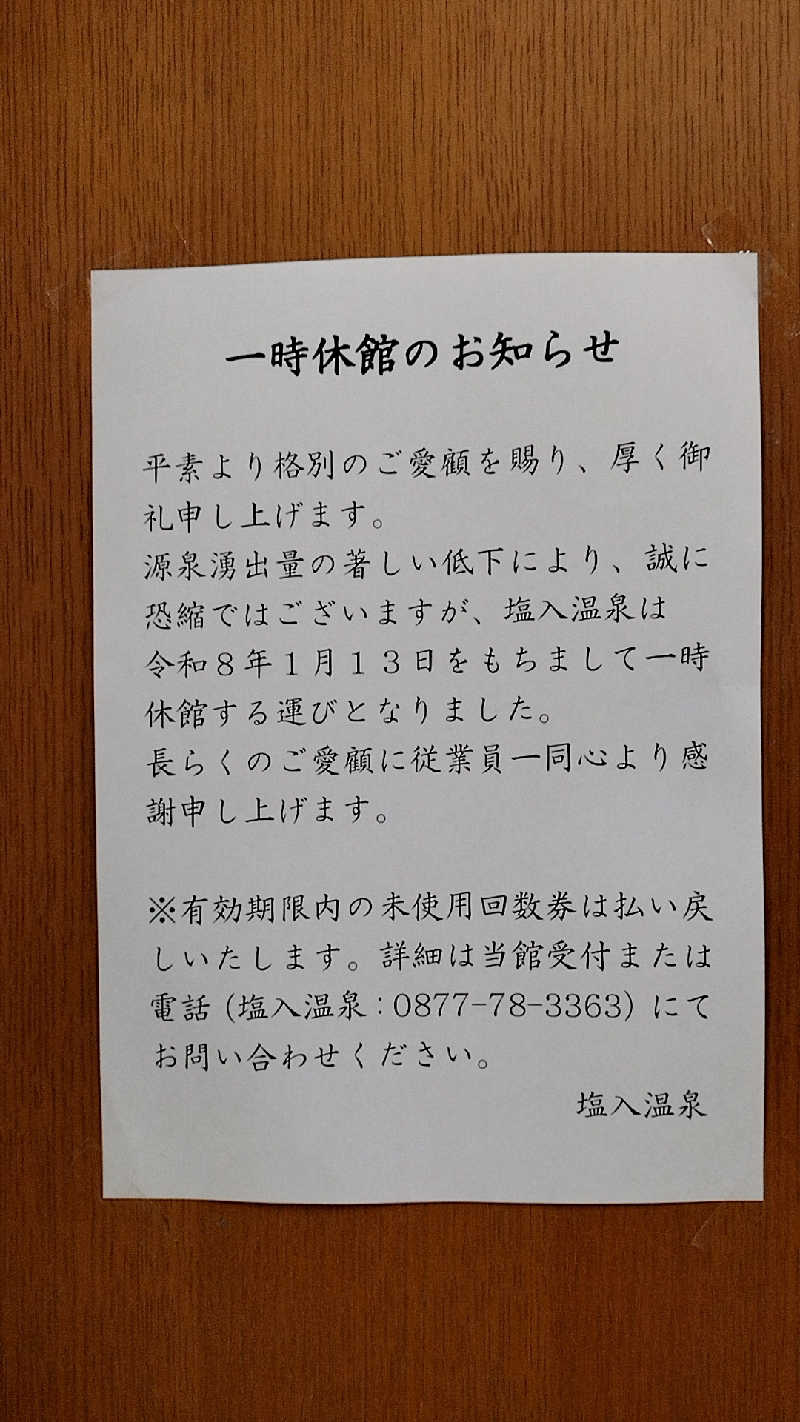 一時休館のお知らせ
平素より格別のご愛顧を賜り、厚く御
礼申し上げます。
源泉湧出量の著しい低下により、誠に
恐縮ではございますが、塩入温泉は
令和８年１月１３日をもちまして一時
休館する運びとなりました。
長らくのご愛顧に従業員一同心より感
謝申し上げます。
※有効期限内の未使用回数券は払い戻
しいたします。詳細は当館受付または
電話（塩入温泉：0877-78-3363）にて
お問い合わせください。
塩入温泉